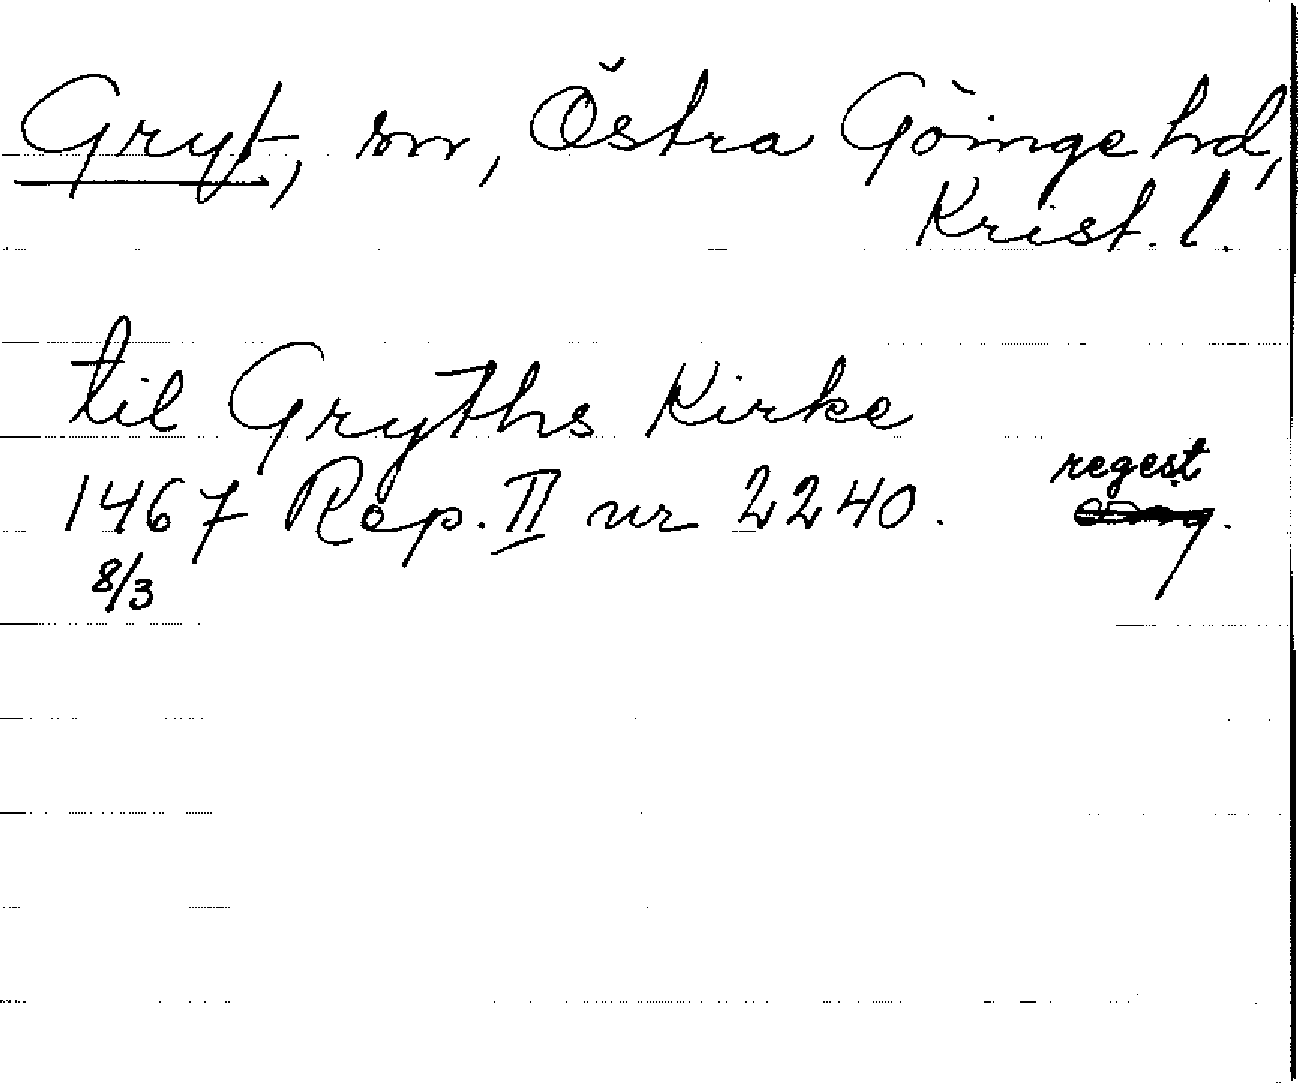 Gryt, sn, Östra Göinge hd,
Krist. l.
til Gryths Kirke
regest
1467 Rep. II nr 2240.
8/3